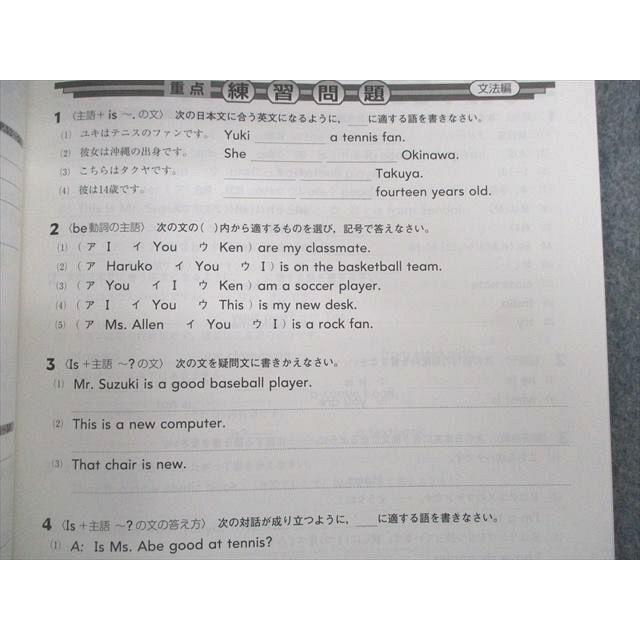 重点 練習問題 文法編
1 〈主語+ is ~. の文〉 次の日本文に合う英文になるように, ___に適する語を書きなさい。
(1) ユキはテニスのファンです。 Yuki ___ a tennis fan.
(2) 彼女は沖縄の出身です。 She ___ ___ Okinawa.
(3) こちらはタクヤです。 ___ ___ Takuya.
(4) 彼は14歳です。 ___ ___ fourteen years old.
2 〈be動詞の主語〉 次の文の( )内から適するものを選び, 記号で答えなさい。
(1) ( ア I イ You ウ Ken ) are my classmate.
(2) ( ア Haruko イ You ウ I ) is on the basketball team.
(3) ( ア You イ I ウ Ken ) am a soccer player.
(4) ( ア I イ You ウ This ) is my new desk.
(5) ( ア Ms. Allen イ You ウ I ) is a rock fan.
3 〈Is +主語 ~? の文〉 次の文を疑問文に書きかえなさい。
(1) Mr. Suzuki is a good baseball player.
(2) This is a new computer.
(3) That chair is new.
4 〈Is +主語 ~? の文の答え方〉 次の対話が成り立つように, ___に適する語を書きなさい。
(1) A: Is Ms. Abe good at tennis?